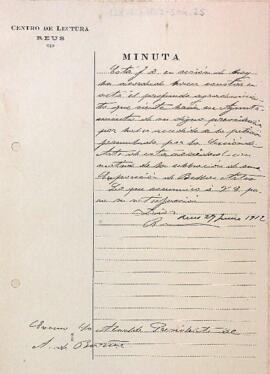 CENTRO DE LECTURA
REUS
MINUTA
Esta J. D. en sesión de hoy
ha acordado hacer constar en
acta el profundo agradecimien-
to que siente hacia ese Ayunta-
miento de su digna presidencia
por haber accedido a la petición
formulada por la Sección de
Arte de esta sociedad con
motivo de la subvención de una
Exposición de Bellas Artes
Lo que comunico a V. E. pa
ra su satisfacción
Dios
Reus 27 Junio 1912
Excmo Sr Alcalde Presidente de
A. de